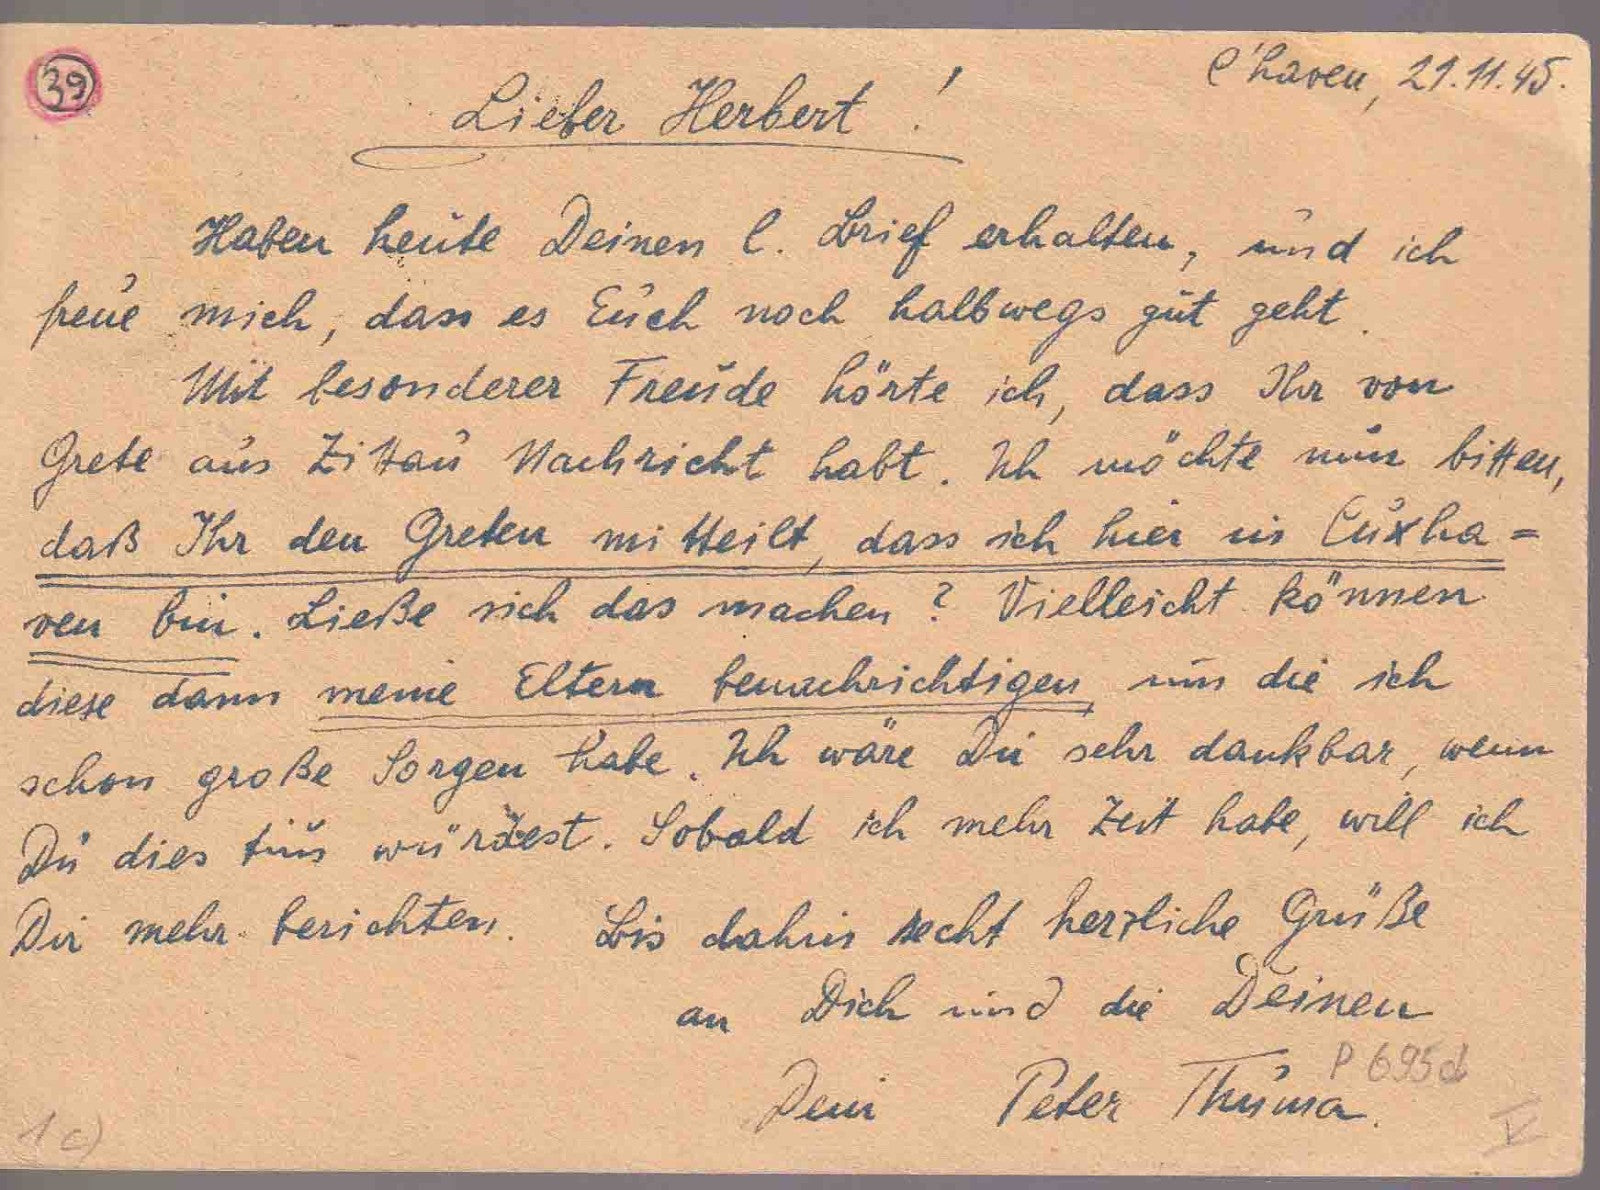 39
C'haven, 21.11.45.
Lieber Herbert !
Haben heute Deinen l. Brief erhalten, und ich
freue mich, dass es Euch noch halbwegs gut geht.
Mit besonderer Freude hörte ich, dass Ihr von
Grete aus Zittau Nachricht habt. Ich möchte nun bitten,
daß Ihr den Greten mitteilt, dass ich hier in Cuxha=
ven bin. Ließe sich das machen? Vielleicht können
diese dann meine Eltern benachrichtigen um die ich
schon große Sorgen habe. Ich wäre Dir sehr dankbar, wenn
Du dies tun würdest. Sobald ich mehr Zeit habe, will ich
Dir mehr berichten. Bis dahin recht herzliche Grüße
an Dich und die Deinen
Dein Peter Thuma.
P 695d
1c)
V